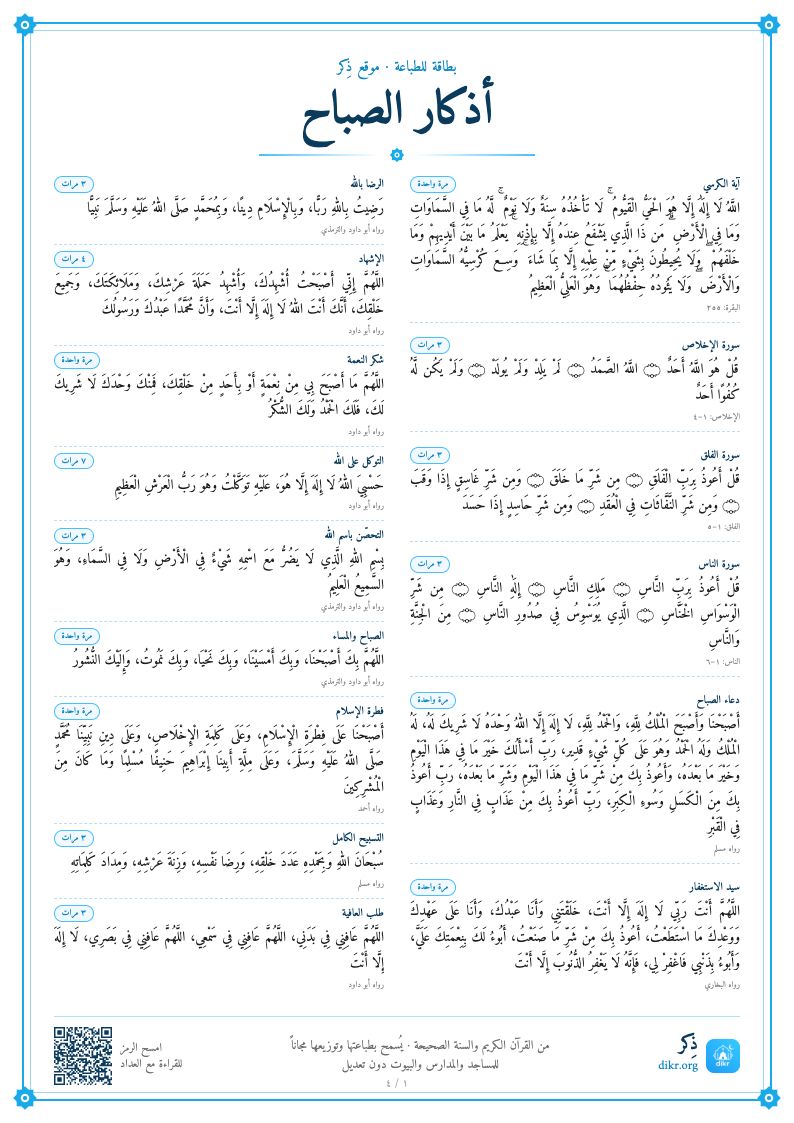 بطاقة للطباعة · موقع ذِكر
أذكار الصباح
آية الكرسي
مرة واحدة
اللَّهُ لَا إِلَٰهَ إِلَّا هُوَ الْحَيُّ الْقَيُّومُ ۚ لَا تَأْخُذُهُ سِنَةٌ وَلَا نَوْمٌ ۚ لَّهُ مَا فِي السَّمَاوَاتِ
وَمَا فِي الْأَرْضِ ۗ مَن ذَا الَّذِي يَشْفَعُ عِندَهُ إِلَّا بِإِذْنِهِ ۚ يَعْلَمُ مَا بَيْنَ أَيْدِيهِمْ وَمَا
خَلْفَهُمْ ۖ وَلَا يُحِيطُونَ بِشَيْءٍ مِّنْ عِلْمِهِ إِلَّا بِمَا شَاءَ ۚ وَسِعَ كُرْسِيُّهُ السَّمَاوَاتِ
وَالْأَرْضَ ۖ وَلَا يَئُودُهُ حِفْظُهُمَا ۚ وَهُوَ الْعَلِيُّ الْعَظِيمُ
البقرة: ٢٥٥
سورة الإخلاص
٣ مرات
قُلْ هُوَ اللَّهُ أَحَدٌ ۝ اللَّهُ الصَّمَدُ ۝ لَمْ يَلِدْ وَلَمْ يُولَدْ ۝ وَلَمْ يَكُن لَّهُ
كُفُوًا أَحَدٌ
الإخلاص: ١-٤
سورة الفلق
٣ مرات
قُلْ أَعُوذُ بِرَبِّ الْفَلَقِ ۝ مِن شَرِّ مَا خَلَقَ ۝ وَمِن شَرِّ غَاسِقٍ إِذَا وَقَبَ
۝ وَمِن شَرِّ النَّفَّاثَاتِ فِي الْعُقَدِ ۝ وَمِن شَرِّ حَاسِدٍ إِذَا حَسَدَ
الفلق: ١-٥
سورة الناس
٣ مرات
قُلْ أَعُوذُ بِرَبِّ النَّاسِ ۝ مَلِكِ النَّاسِ ۝ إِلَٰهِ النَّاسِ ۝ مِن شَرِّ
الْوَسْوَاسِ الْخَنَّاسِ ۝ الَّذِي يُوَسْوِسُ فِي صُدُورِ النَّاسِ ۝ مِنَ الْجِنَّةِ
وَالنَّاسِ
الناس: ١-٦
دعاء الصباح
مرة واحدة
أَصْبَحْنَا وَأَصْبَحَ الْمُلْكُ لِلَّهِ، وَالْحَمْدُ لِلَّهِ، لَا إِلَهَ إِلَّا اللهُ وَحْدَهُ لَا شَرِيكَ لَهُ، لَهُ
الْمُلْكُ وَلَهُ الْحَمْدُ وَهُوَ عَلَى كُلِّ شَيْءٍ قَدِير، رَبِّ أَسْأَلُكَ خَيْرَ مَا فِي هَذَا الْيَوْمِ
وَخَيْرَ مَا بَعْدَهُ، وَأَعُوذُ بِكَ مِنْ شَرِّ مَا فِي هَذَا الْيَوْمِ وَشَرِّ مَا بَعْدَهُ، رَبِّ أَعُوذُ
بِكَ مِنَ الْكَسَلِ وَسُوءِ الْكِبَرِ، رَبِّ أَعُوذُ بِكَ مِنْ عَذَابٍ فِي النَّارِ وَعَذَابٍ
فِي الْقَبْرِ
رواه مسلم
سيد الاستغفار
مرة واحدة
اللَّهُمَّ أَنْتَ رَبِّي لَا إِلَهَ إِلَّا أَنْتَ، خَلَقْتَنِي وَأَنَا عَبْدُكَ، وَأَنَا عَلَى عَهْدِكَ
وَوَعْدِكَ مَا اسْتَطَعْتُ، أَعُوذُ بِكَ مِنْ شَرِّ مَا صَنَعْتُ، أَبُوءُ لَكَ بِنِعْمَتِكَ عَلَيَّ،
وَأَبُوءُ بِذَنْبِي فَاغْفِرْ لِي، فَإِنَّهُ لَا يَغْفِرُ الذُّنُوبَ إِلَّا أَنْتَ
رواه البخاري
الرضا بالله
٣ مرات
رَضِيتُ بِاللهِ رَبًّا، وَبِالْإِسْلَامِ دِينًا، وَبِمُحَمَّدٍ صَلَّى اللهُ عَلَيْهِ وَسَلَّمَ نَبِيًّا
رواه أبو داود والترمذي
الإشهاد
٤ مرات
اللَّهُمَّ إِنِّي أَصْبَحْتُ أُشْهِدُكَ، وَأُشْهِدُ حَمَلَةَ عَرْشِكَ، وَمَلَائِكَتَكَ، وَجَمِيعَ
خَلْقِكَ، أَنَّكَ أَنْتَ اللهُ لَا إِلَهَ إِلَّا أَنْتَ، وَأَنَّ مُحَمَّدًا عَبْدُكَ وَرَسُولُكَ
رواه أبو داود
شكر النعمة
مرة واحدة
اللَّهُمَّ مَا أَصْبَحَ بِي مِنْ نِعْمَةٍ أَوْ بِأَحَدٍ مِنْ خَلْقِكَ، فَمِنْكَ وَحْدَكَ لَا شَرِيكَ
لَكَ، فَلَكَ الْحَمْدُ وَلَكَ الشُّكْرُ
رواه أبو داود
التوكل على الله
٧ مرات
حَسْبِيَ اللهُ لَا إِلَهَ إِلَّا هُوَ، عَلَيْهِ تَوَكَّلْتُ وَهُوَ رَبُّ الْعَرْشِ الْعَظِيمِ
رواه أبو داود
التحصّن باسم الله
٣ مرات
بِسْمِ اللهِ الَّذِي لَا يَضُرُّ مَعَ اسْمِهِ شَيْءٌ فِي الْأَرْضِ وَلَا فِي السَّمَاءِ، وَهُوَ
السَّمِيعُ الْعَلِيمُ
رواه أبو داود والترمذي
الصباح والمساء
مرة واحدة
اللَّهُمَّ بِكَ أَصْبَحْنَا، وَبِكَ أَمْسَيْنَا، وَبِكَ نَحْيَا، وَبِكَ نَمُوتُ، وَإِلَيْكَ النُّشُورُ
رواه أبو داود والترمذي
فطرة الإسلام
مرة واحدة
أَصْبَحْنَا عَلَى فِطْرَةِ الْإِسْلَامِ، وَعَلَى كَلِمَةِ الْإِخْلَاصِ، وَعَلَى دِينِ نَبِيِّنَا مُحَمَّدٍ
صَلَّى اللهُ عَلَيْهِ وَسَلَّمَ، وَعَلَى مِلَّةِ أَبِينَا إِبْرَاهِيمَ حَنِيفًا مُسْلِمًا وَمَا كَانَ مِنَ
الْمُشْرِكِينَ
رواه أحمد
التسبيح الكامل
٣ مرات
سُبْحَانَ اللهِ وَبِحَمْدِهِ عَدَدَ خَلْقِهِ، وَرِضَا نَفْسِهِ، وَزِنَةَ عَرْشِهِ، وَمِدَادَ كَلِمَاتِهِ
رواه مسلم
طلب العافية
٣ مرات
اللَّهُمَّ عَافِنِي فِي بَدَنِي، اللَّهُمَّ عَافِنِي فِي سَمْعِي، اللَّهُمَّ عَافِنِي فِي بَصَرِي، لَا إِلَهَ
إِلَّا أَنْتَ
رواه أبو داود
dikr
ذِكْر
dikr.org
من القرآن الكريم والسنة الصحيحة · يُسمح بطباعتها وتوزيعها مجاناً
للمساجد والمدارس والبيوت دون تعديل
١ / ٤
امسح الرمز
للقراءة مع العداد